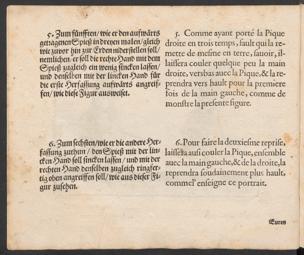 5. Zum fünfften/ wie er den auffwärts
getragenen Spieß in dreyen malen/ gleich
wie zuvor hin zur Erden niderstellen sol/
nemlichen/ er soll die rechte Hand mit dem
Spieß zugleich ein wenig sincken lassen/
und denselben mit der lincken Hand für
die erste Herfassung auffwärts angreif-
fen/ wie diese Figur ausweiset.
6. Zum sechsten/ wie er die ander Her-
fassung zuthun/ den Spieß mit der lin-
cken Hand soll sincken lassen/ und mit der
rechten Hand denselben zugleich ringfer-
tig oben angreiffen soll/ wie aus dieser Fi-
gur zusehen.
5. Comme ayant porté la Pique
droite en trois temps, fault qu'il la re-
mette de mesme en terre, sauoir, il
laissera couler quelque peu la main
droite, vers bas auec la Pique, & la re-
prendra vers hault pour la premiere
fois de la main gauche, comme de-
monstre la presente figure.
6. Pour faire la deuxiesme reprise,
laissera ausi couler la Pique, ensemble
auec la main gauche, & de la droite, la
reprendra soudainement plus hault,
comme l'enseigne ce portrait.